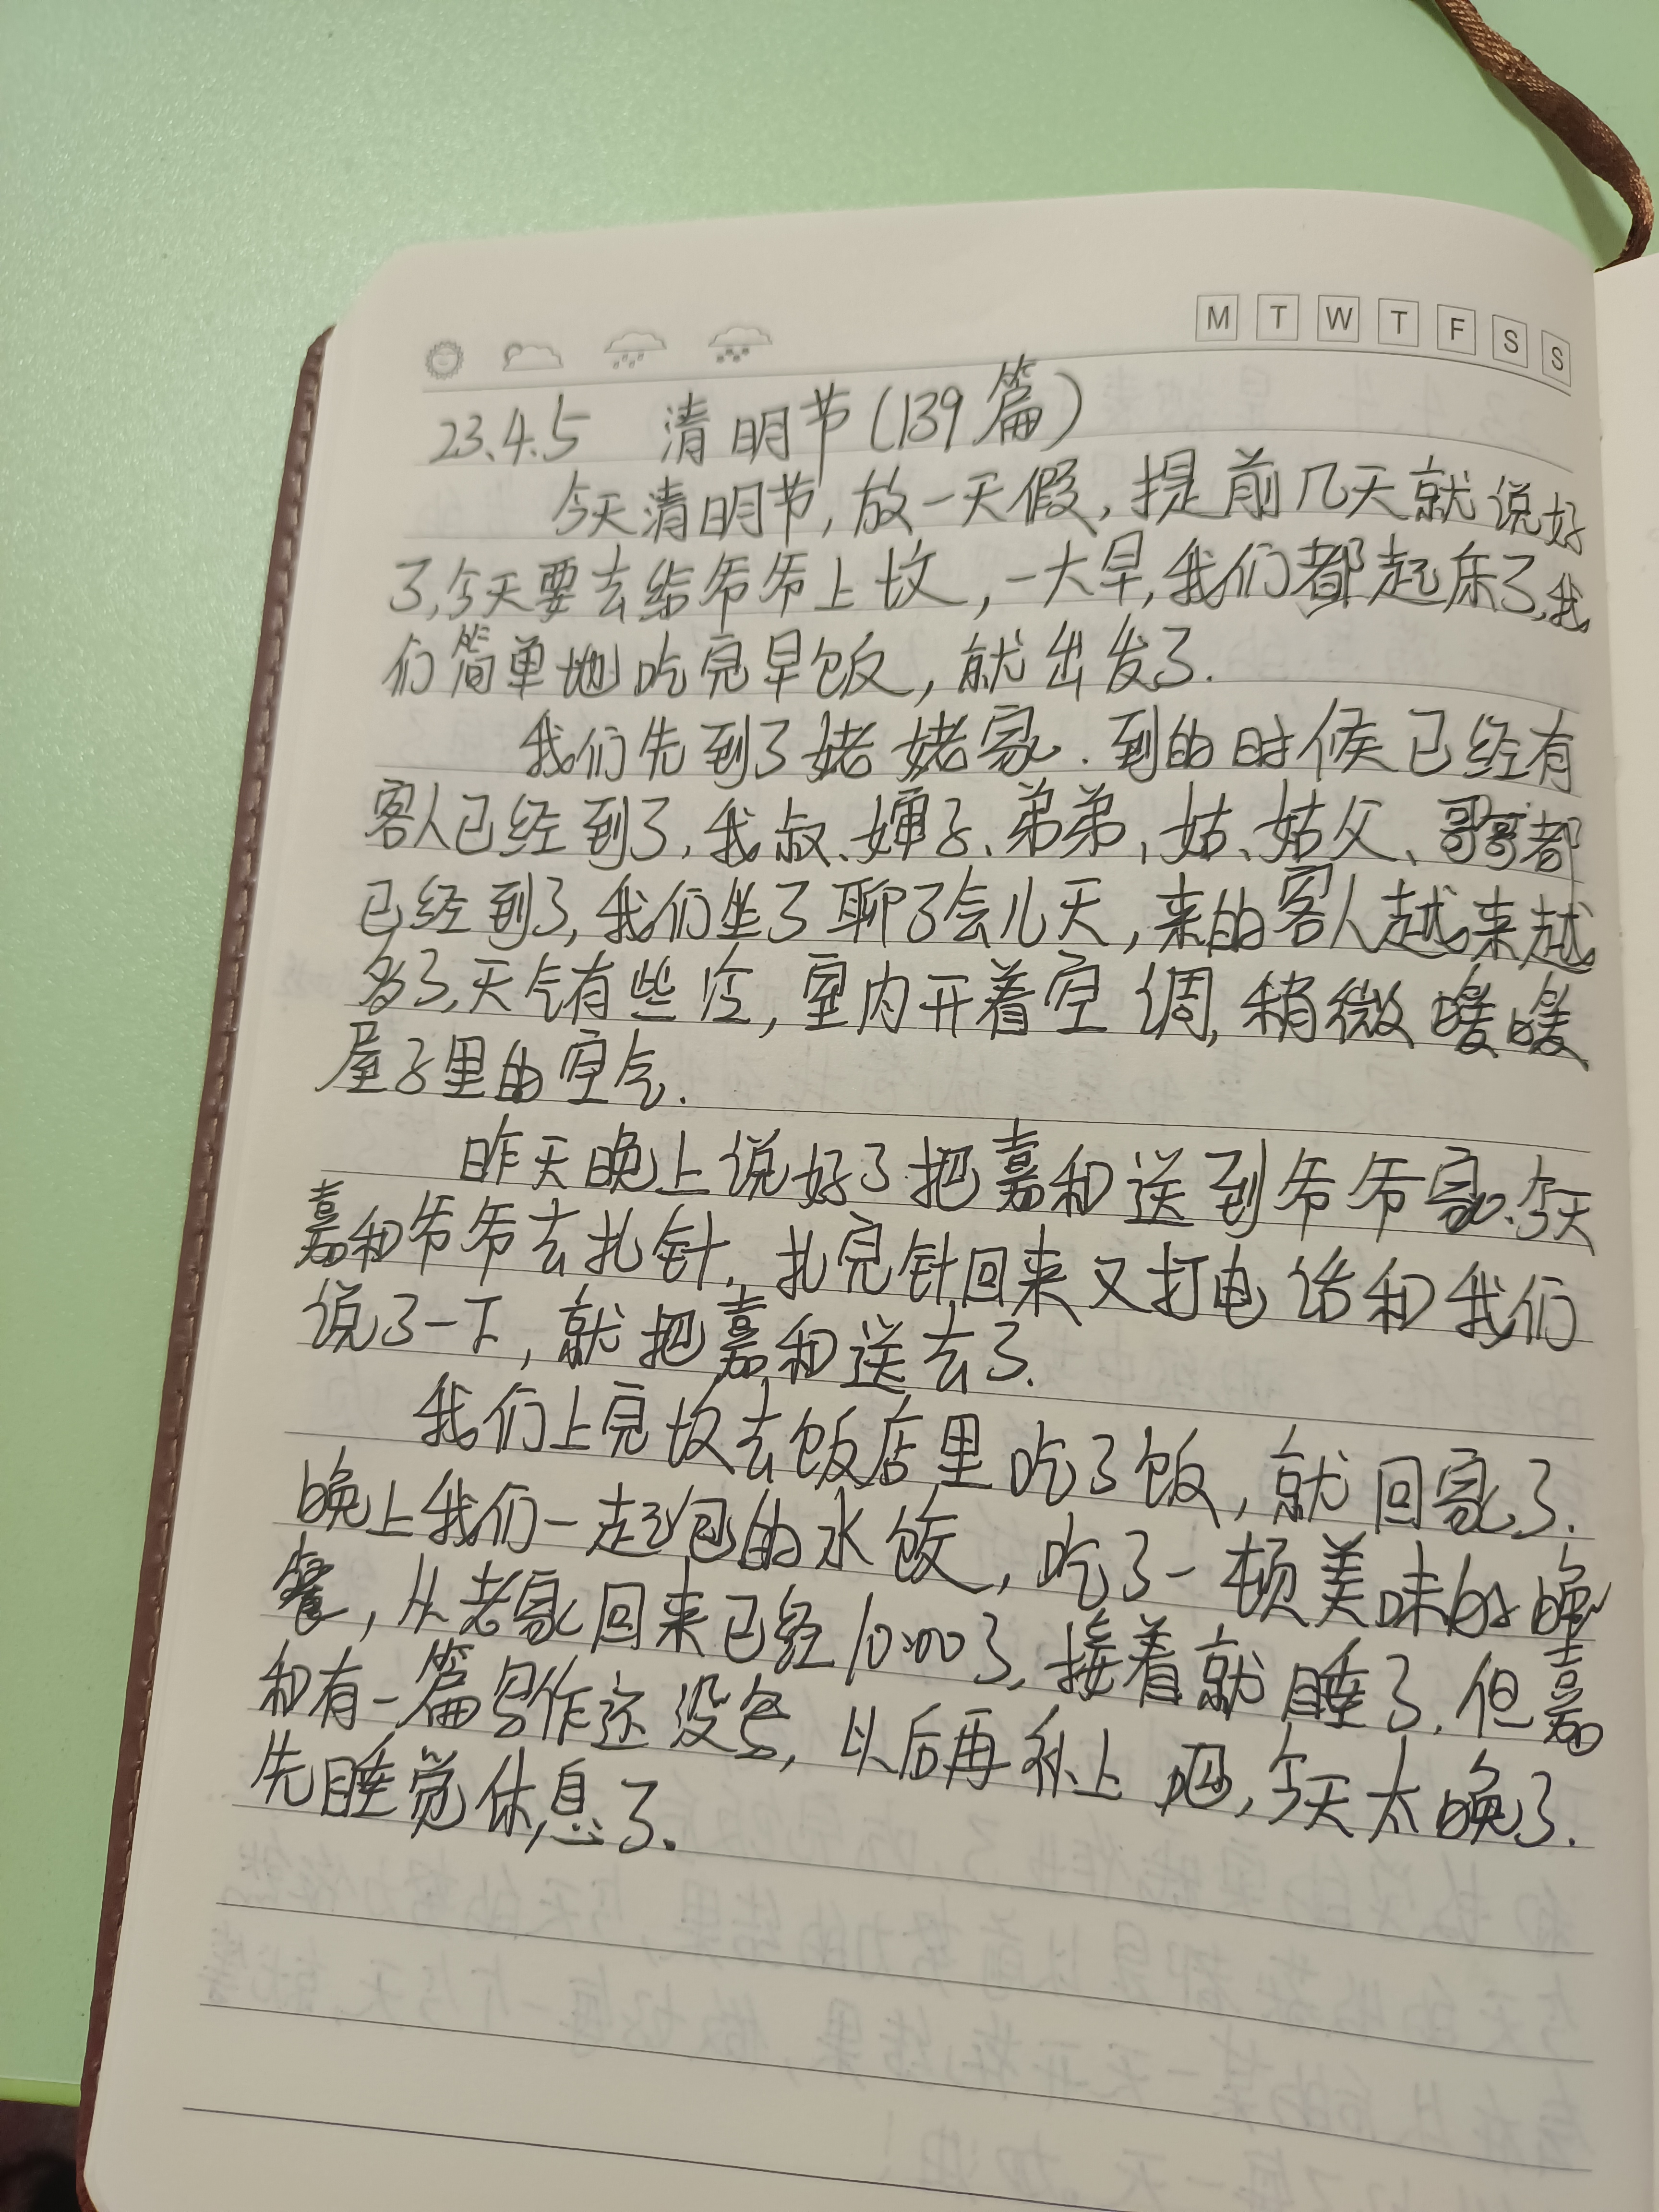 M T W T F S S
23.4.5 清明节(139篇)
今天清明节,放一天假,提前几天就说好
了,今天要去给爷爷上坟,一大早,我们都起床了,我
们简单地吃完早饭,就出发了.
我们先到了姥姥家.到的时候已经有
客人已经到了,我叔、婶子、弟弟,姑、姑父、哥哥都
已经到了,我们坐了聊了会儿天,来的客人越来越
多了,天气有些冷,室内开着空调,稍微暖暖
屋子里的空气.
昨天晚上说好了把嘉和送到爷爷家.今天
嘉和爷爷去扎针,扎完针回来又打电话和我们
说了一下,就把嘉和送去了.
我们上完坟去饭店里吃了饭,就回家了.
晚上我们一起包的水饺,吃了一顿美味的晚
餐,从老家回来已经10:00了,接着就睡了.但嘉
和有一篇写作还没写,以后再补上吧,今天太晚了.
先睡觉休息了.